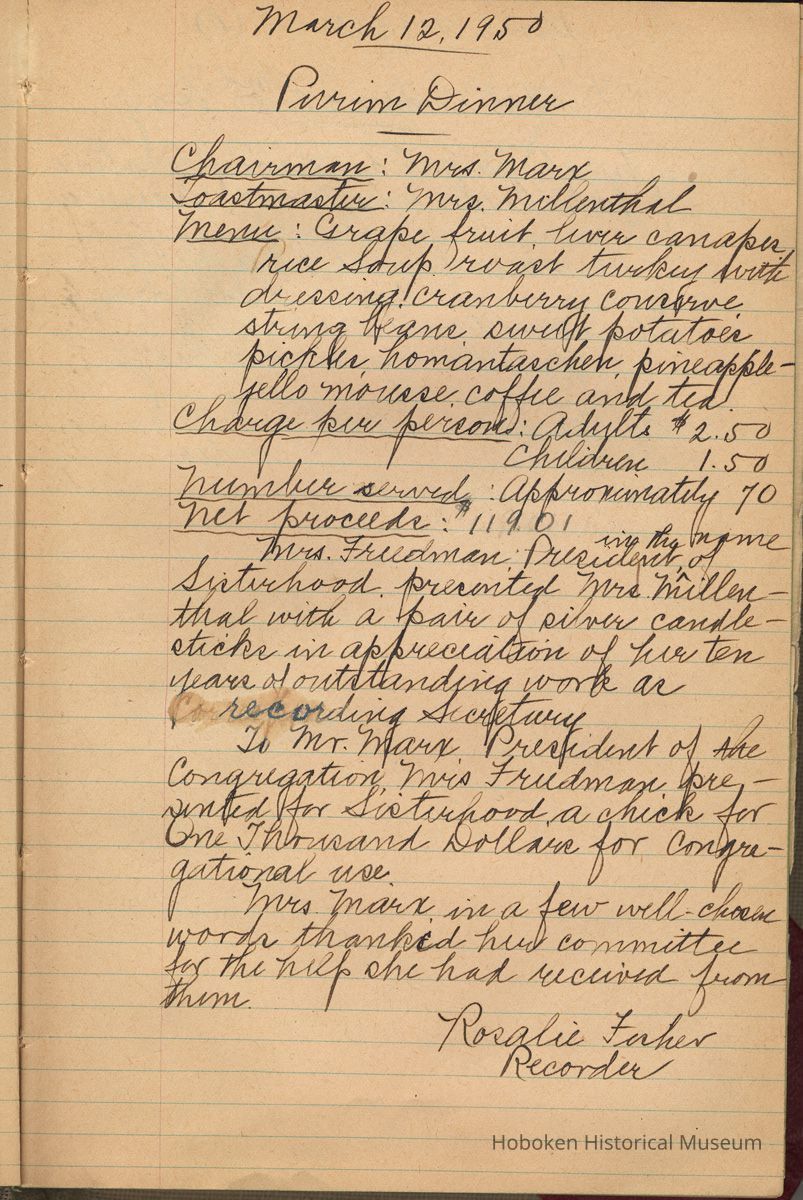 March 12, 1950
Purim Dinner
Chairman: Mrs. Marx
Toastmaster: Mrs. Millenthal
Menu: Grape fruit, liver canapes,
rice soup, roast turkey with
dressing, cranberry conserve,
string beans, sweet potatoes
pickles, homantaschen, pineapple-
jello mousse, coffee and tea.
Charge per person: Adults $2.50
Children 1.50
Number served: Approximately 70
Net proceeds: $119.01
Mrs. Freedman, President, in the name of
Sisterhood, presented Mrs. Millen-
thal with a pair of silver candle-
sticks in appreciation of her ten
years of outstanding work as
recording Secretary
To Mr. Marx, President of the
Congregation, Mrs Freedman pre-
sented for Sisterhood, a check for
One Thousand Dollars for congre-
gational use.
Mrs Marx, in a few well-chosen
words thanked her committee
for the help she had received from
them.
Rosalie Fisher
Recorder
Hoboken Historical Museum